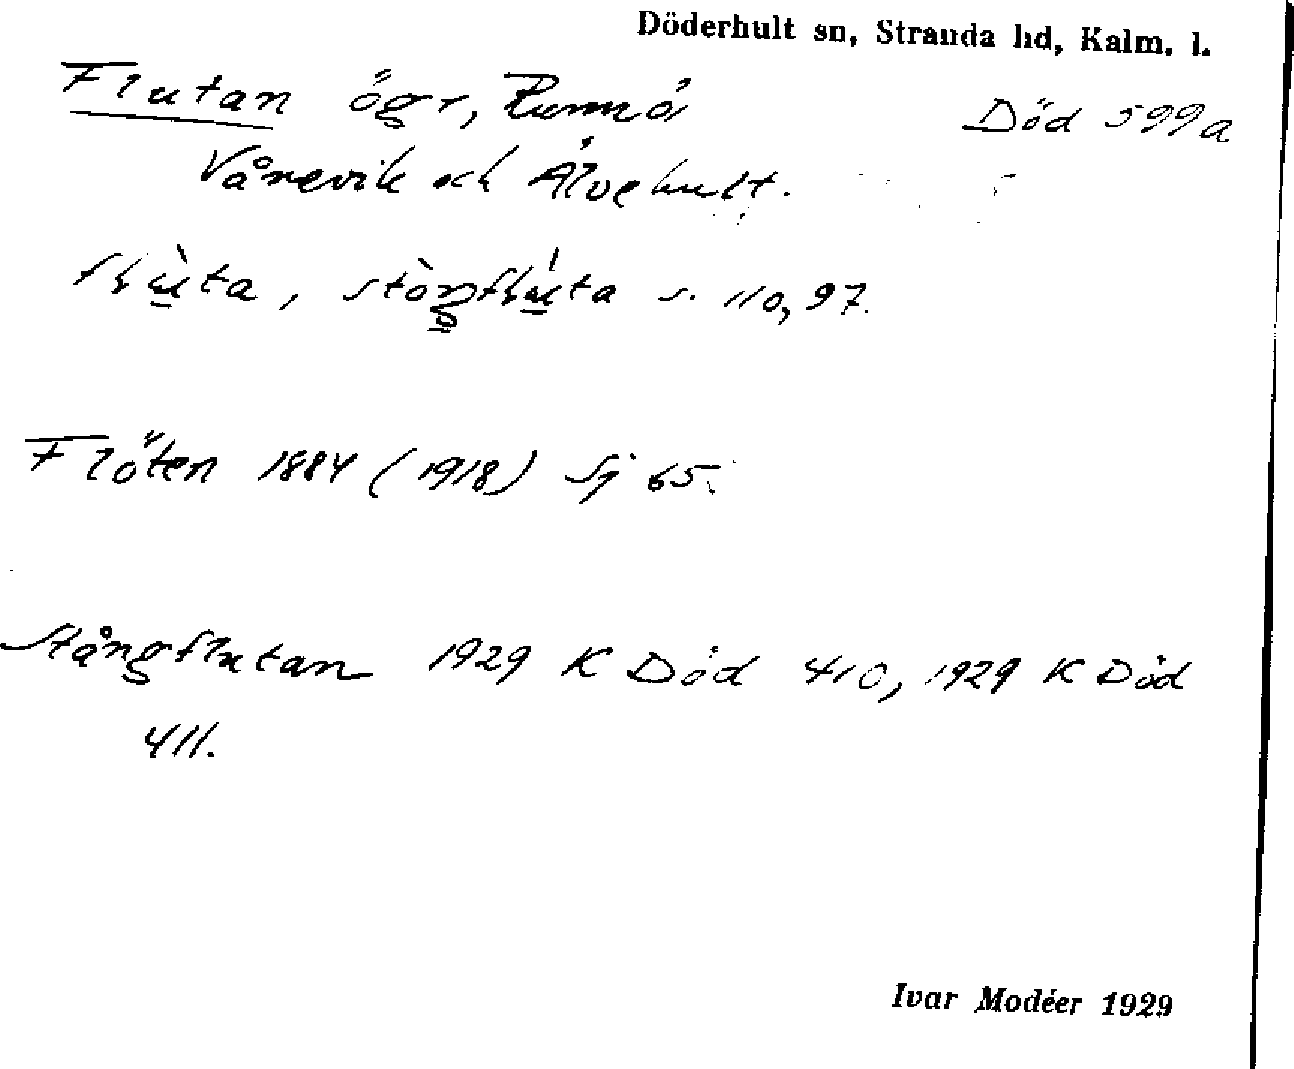 Döderhult sn, Stranda hd, Kalm. l.
Flutan ögr, Runnö Död 599a
Vånevik och Älvehult.
s. 110, 97.
Flöten 1884 (1918) Sj 65.
Stångflutan 1929 K Död 410, 1929 K Död
411.
Ivar Modéer 1929